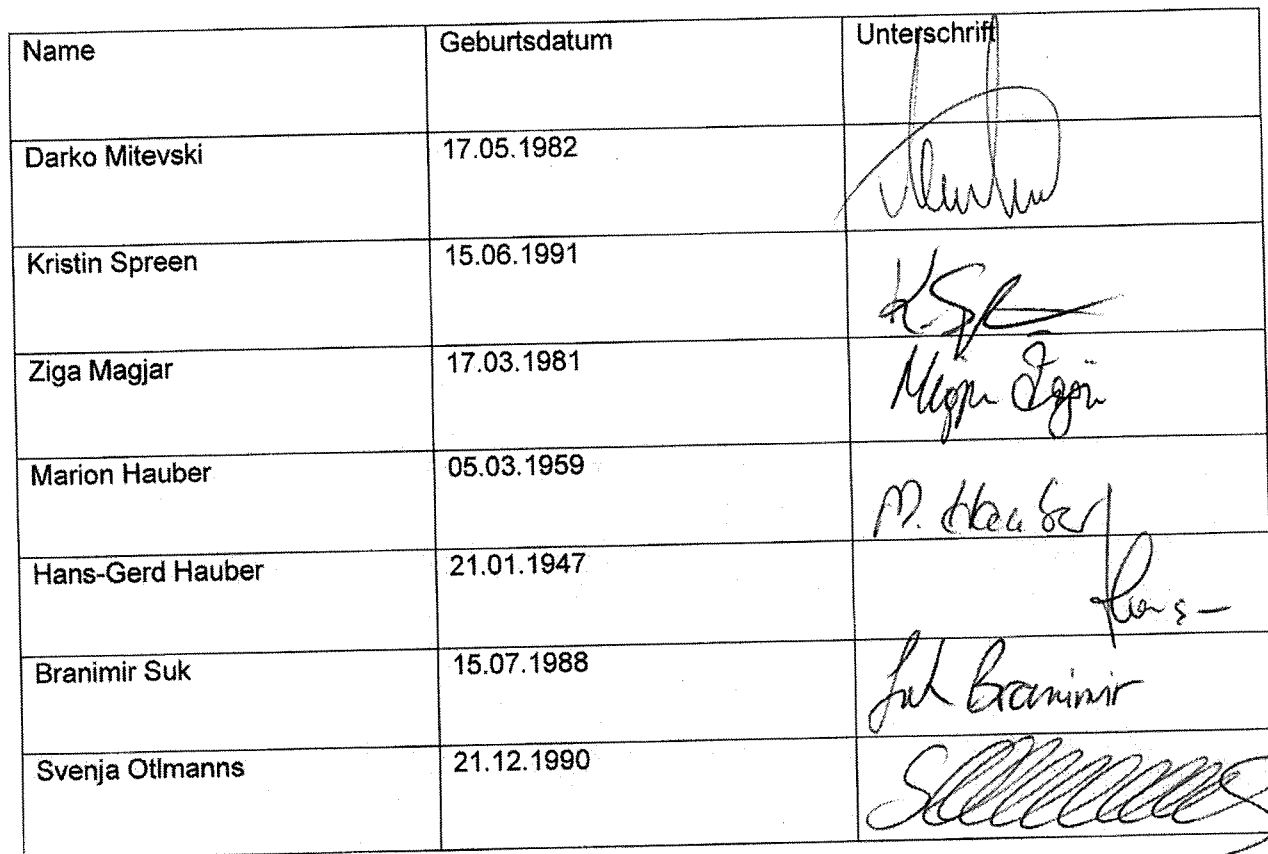 Name Geburtsdatum Unterschrift
Darko Mitevski 17.05.1982
Kristin Spreen 15.06.1991
Ziga Magjar 17.03.1981
Marion Hauber 05.03.1959 M. Hauber
Hans-Gerd Hauber 21.01.1947
Branimir Suk 15.07.1988 Suk Branimir
Svenja Otlmanns 21.12.1990